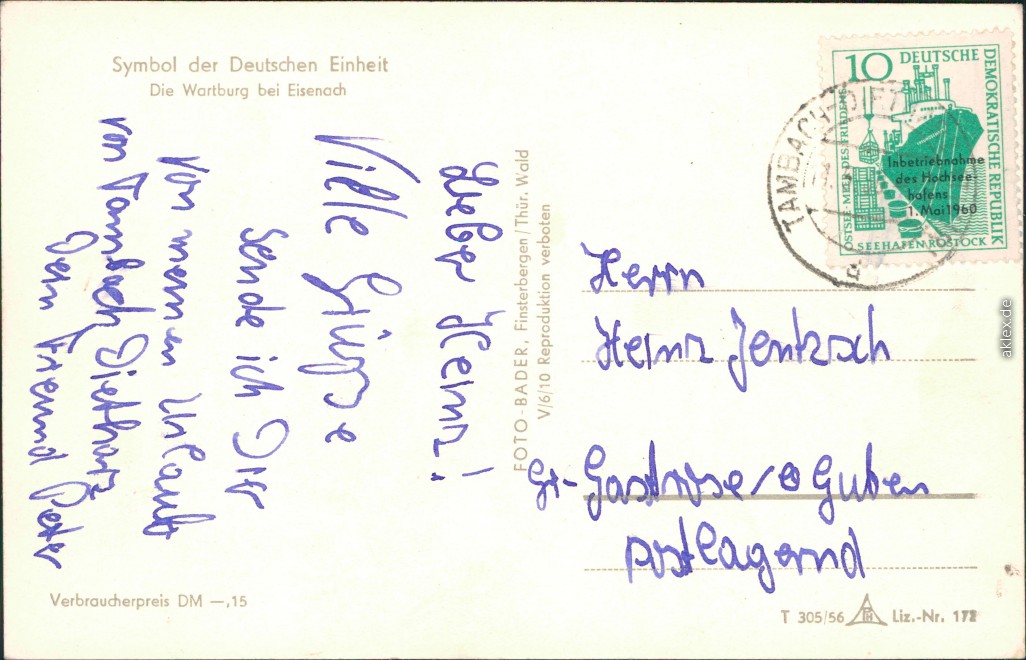 Symbol der Deutschen Einheit
Die Wartburg bei Eisenach
Lieber Heinz!
Viele Grüße
sende ich Dir
von meinen Urlaub
von Tambach Dietharz
Dein Freund Peter
Verbraucherpreis DM —,15
FOTO-BADER, Finsterbergen/Thür. Wald
V/6/10 Reproduktion verboten
TAMBACH-DIET
10 DEUTSCHE
DEMOKRATISCHE REPUBLIK
OSTSEE-MEER DES FRIEDENS
Inbetriebnahme
des Hochsee-
hafens
1. Mai 1960
SEEHAFEN ROSTOCK
Herrn
Heinz Jentzsch
Gr-Gastrose/ Guben
postlagernd
T 305/56 Liz.-Nr. 172
aklex.de